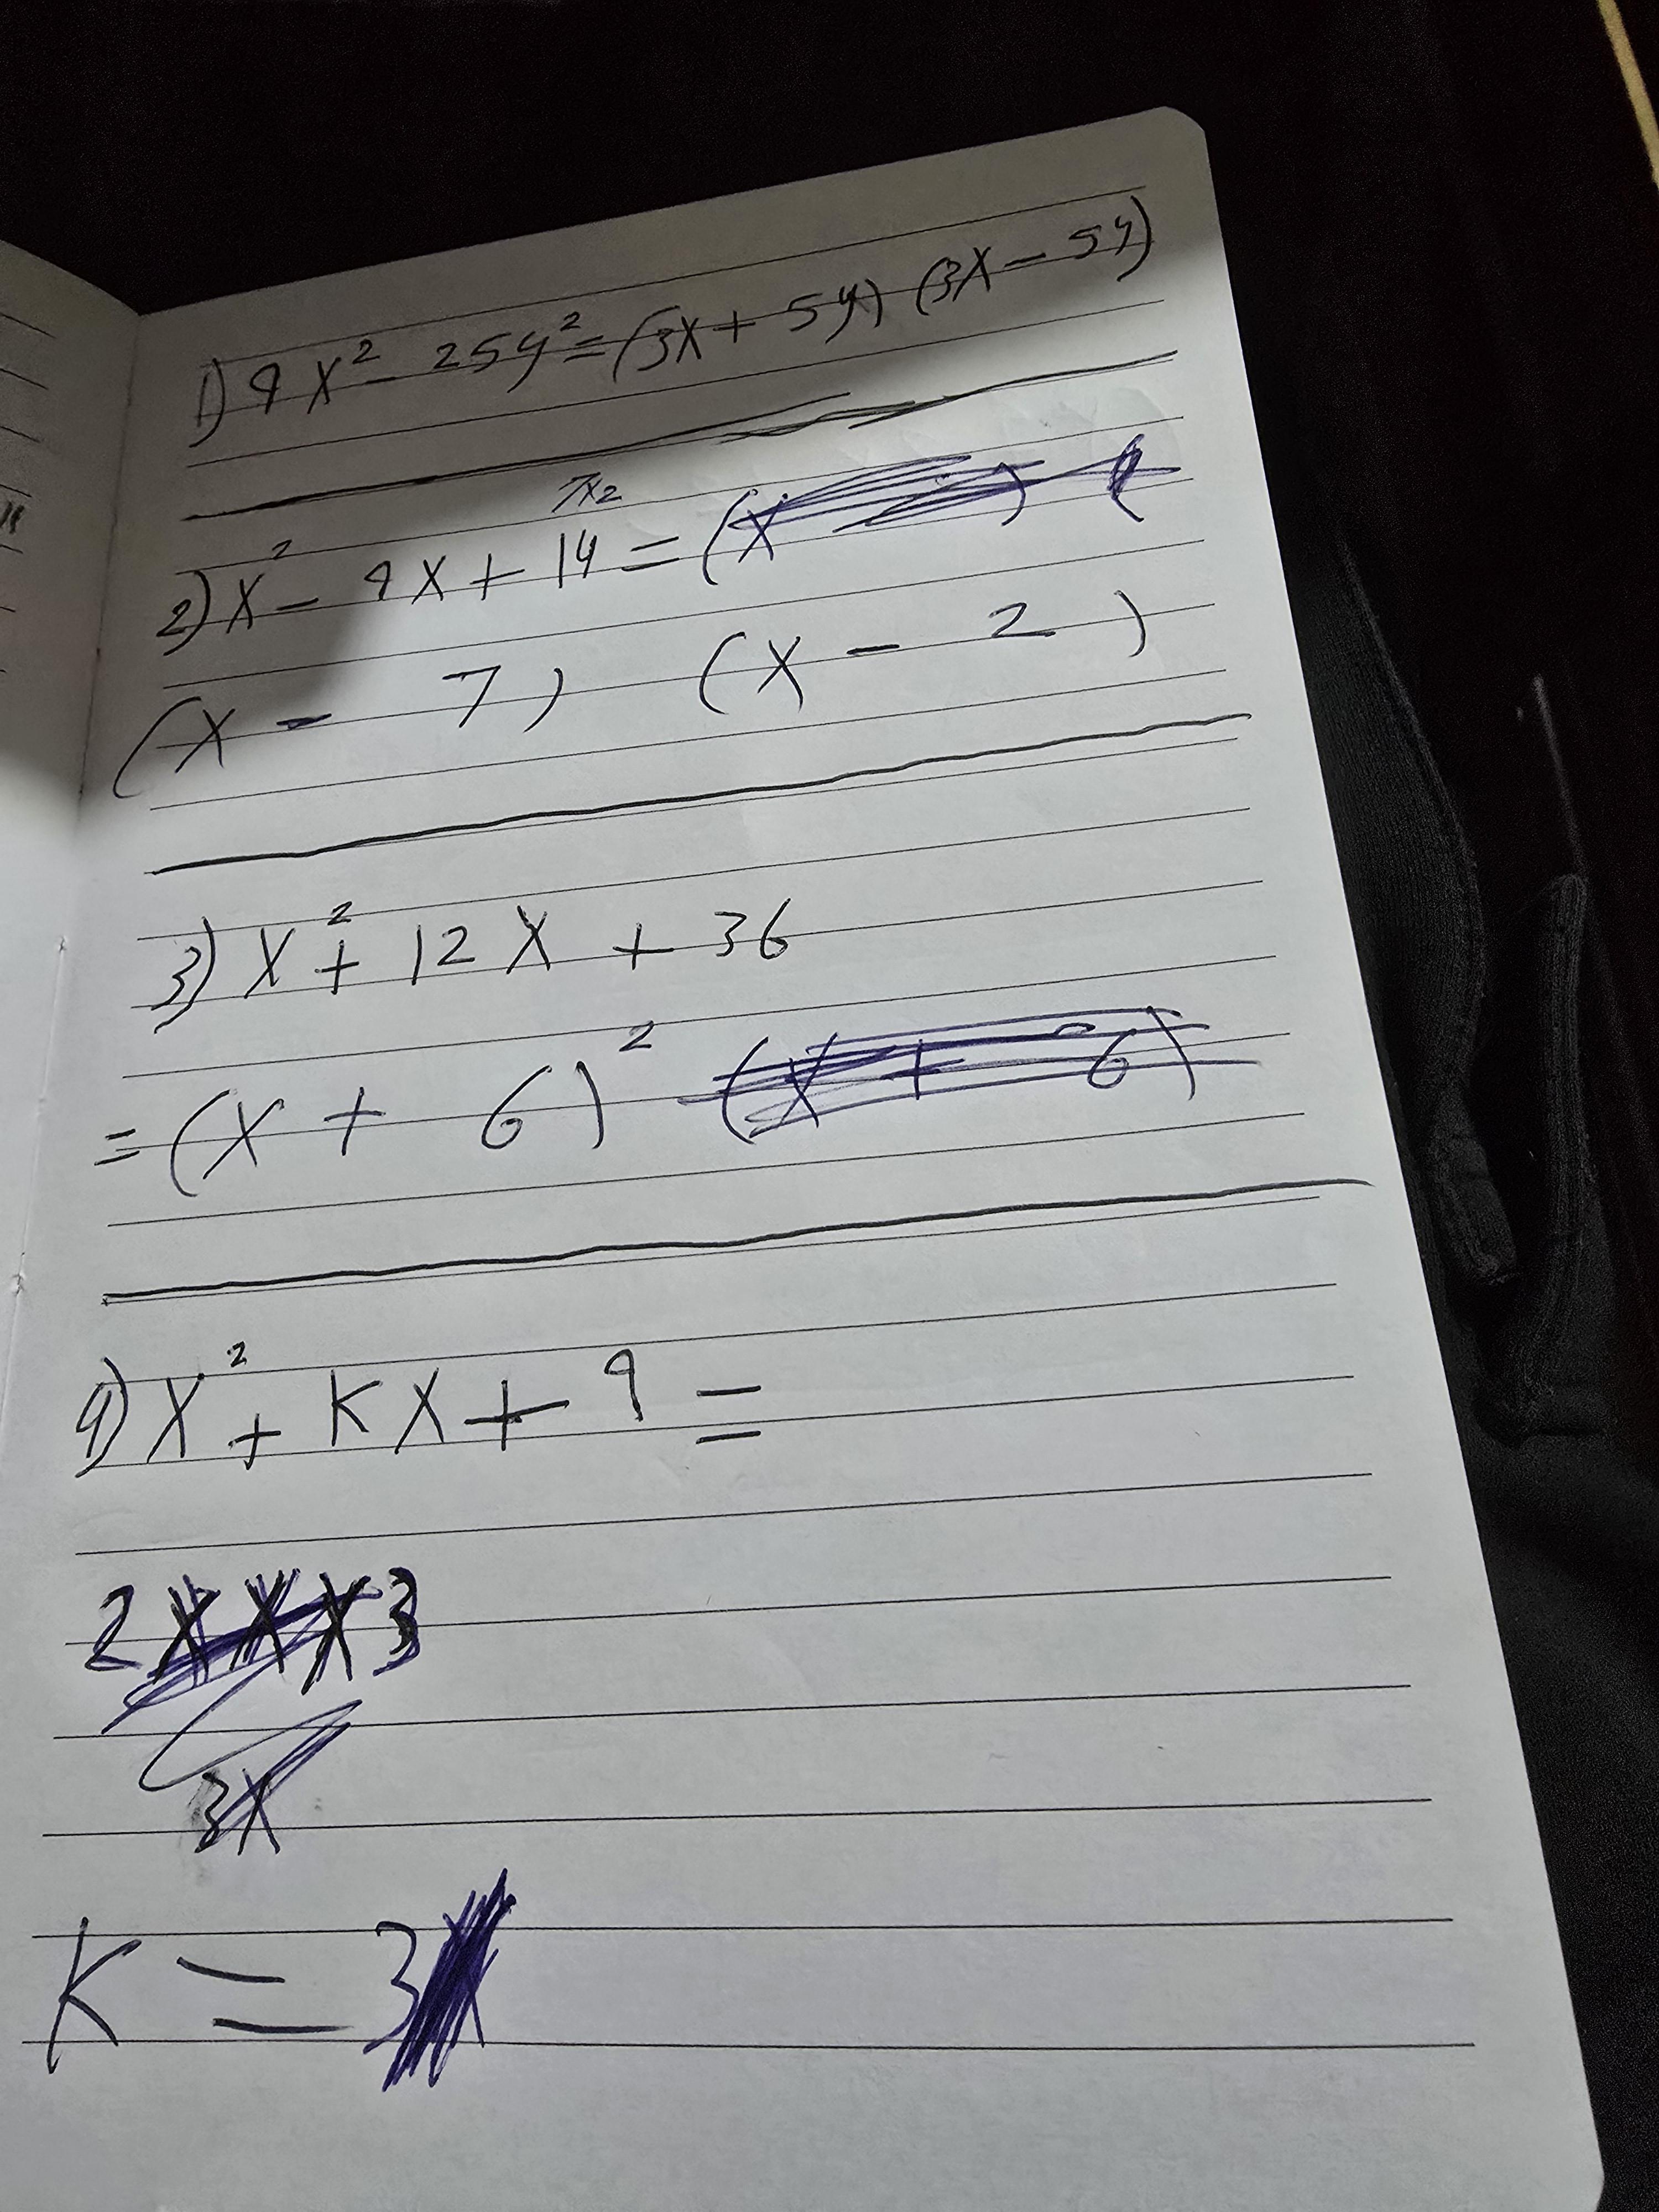 1) 9x² - 25y² = (3x + 5y) (3x - 5y)
7x2
2) x² - 9x + 14 = (x
(x - 7) (x - 2)
3) x² + 12x + 36
= (x + 6)² (x + 6)
4) x² + kx + 9 =
2 x x x 3
3x
k = 3